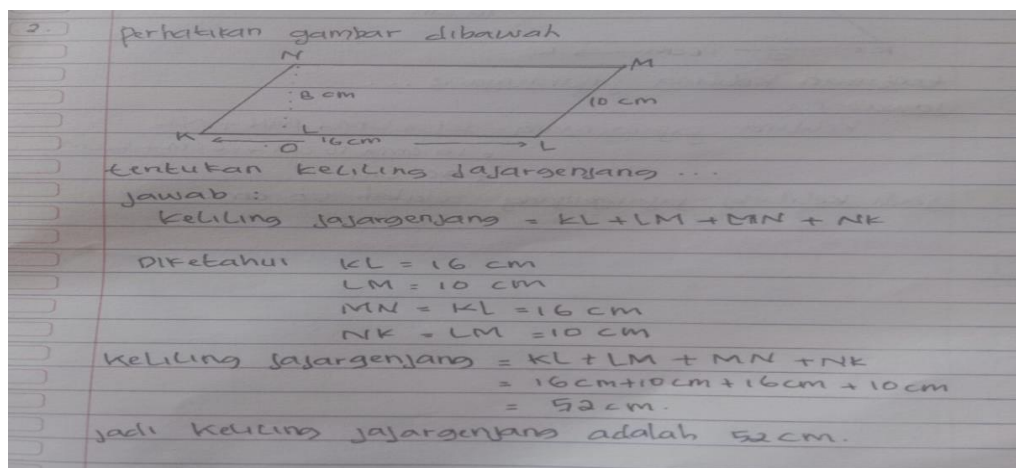 2. Perhatikan gambar dibawah
N M
8 cm 10 cm
K O 16 cm L
tentukan keliling Jajargenjang ...
Jawab :
Keliling Jajargenjang = KL + LM + MN + NK
Diketahui KL = 16 cm
LM = 10 cm
MN = KL = 16 cm
NK = LM = 10 cm
Keliling Jajargenjang = KL + LM + MN + NK
= 16 cm + 10 cm + 16 cm + 10 cm
= 52 cm.
Jadi Keliling Jajargenjang adalah 52 cm.